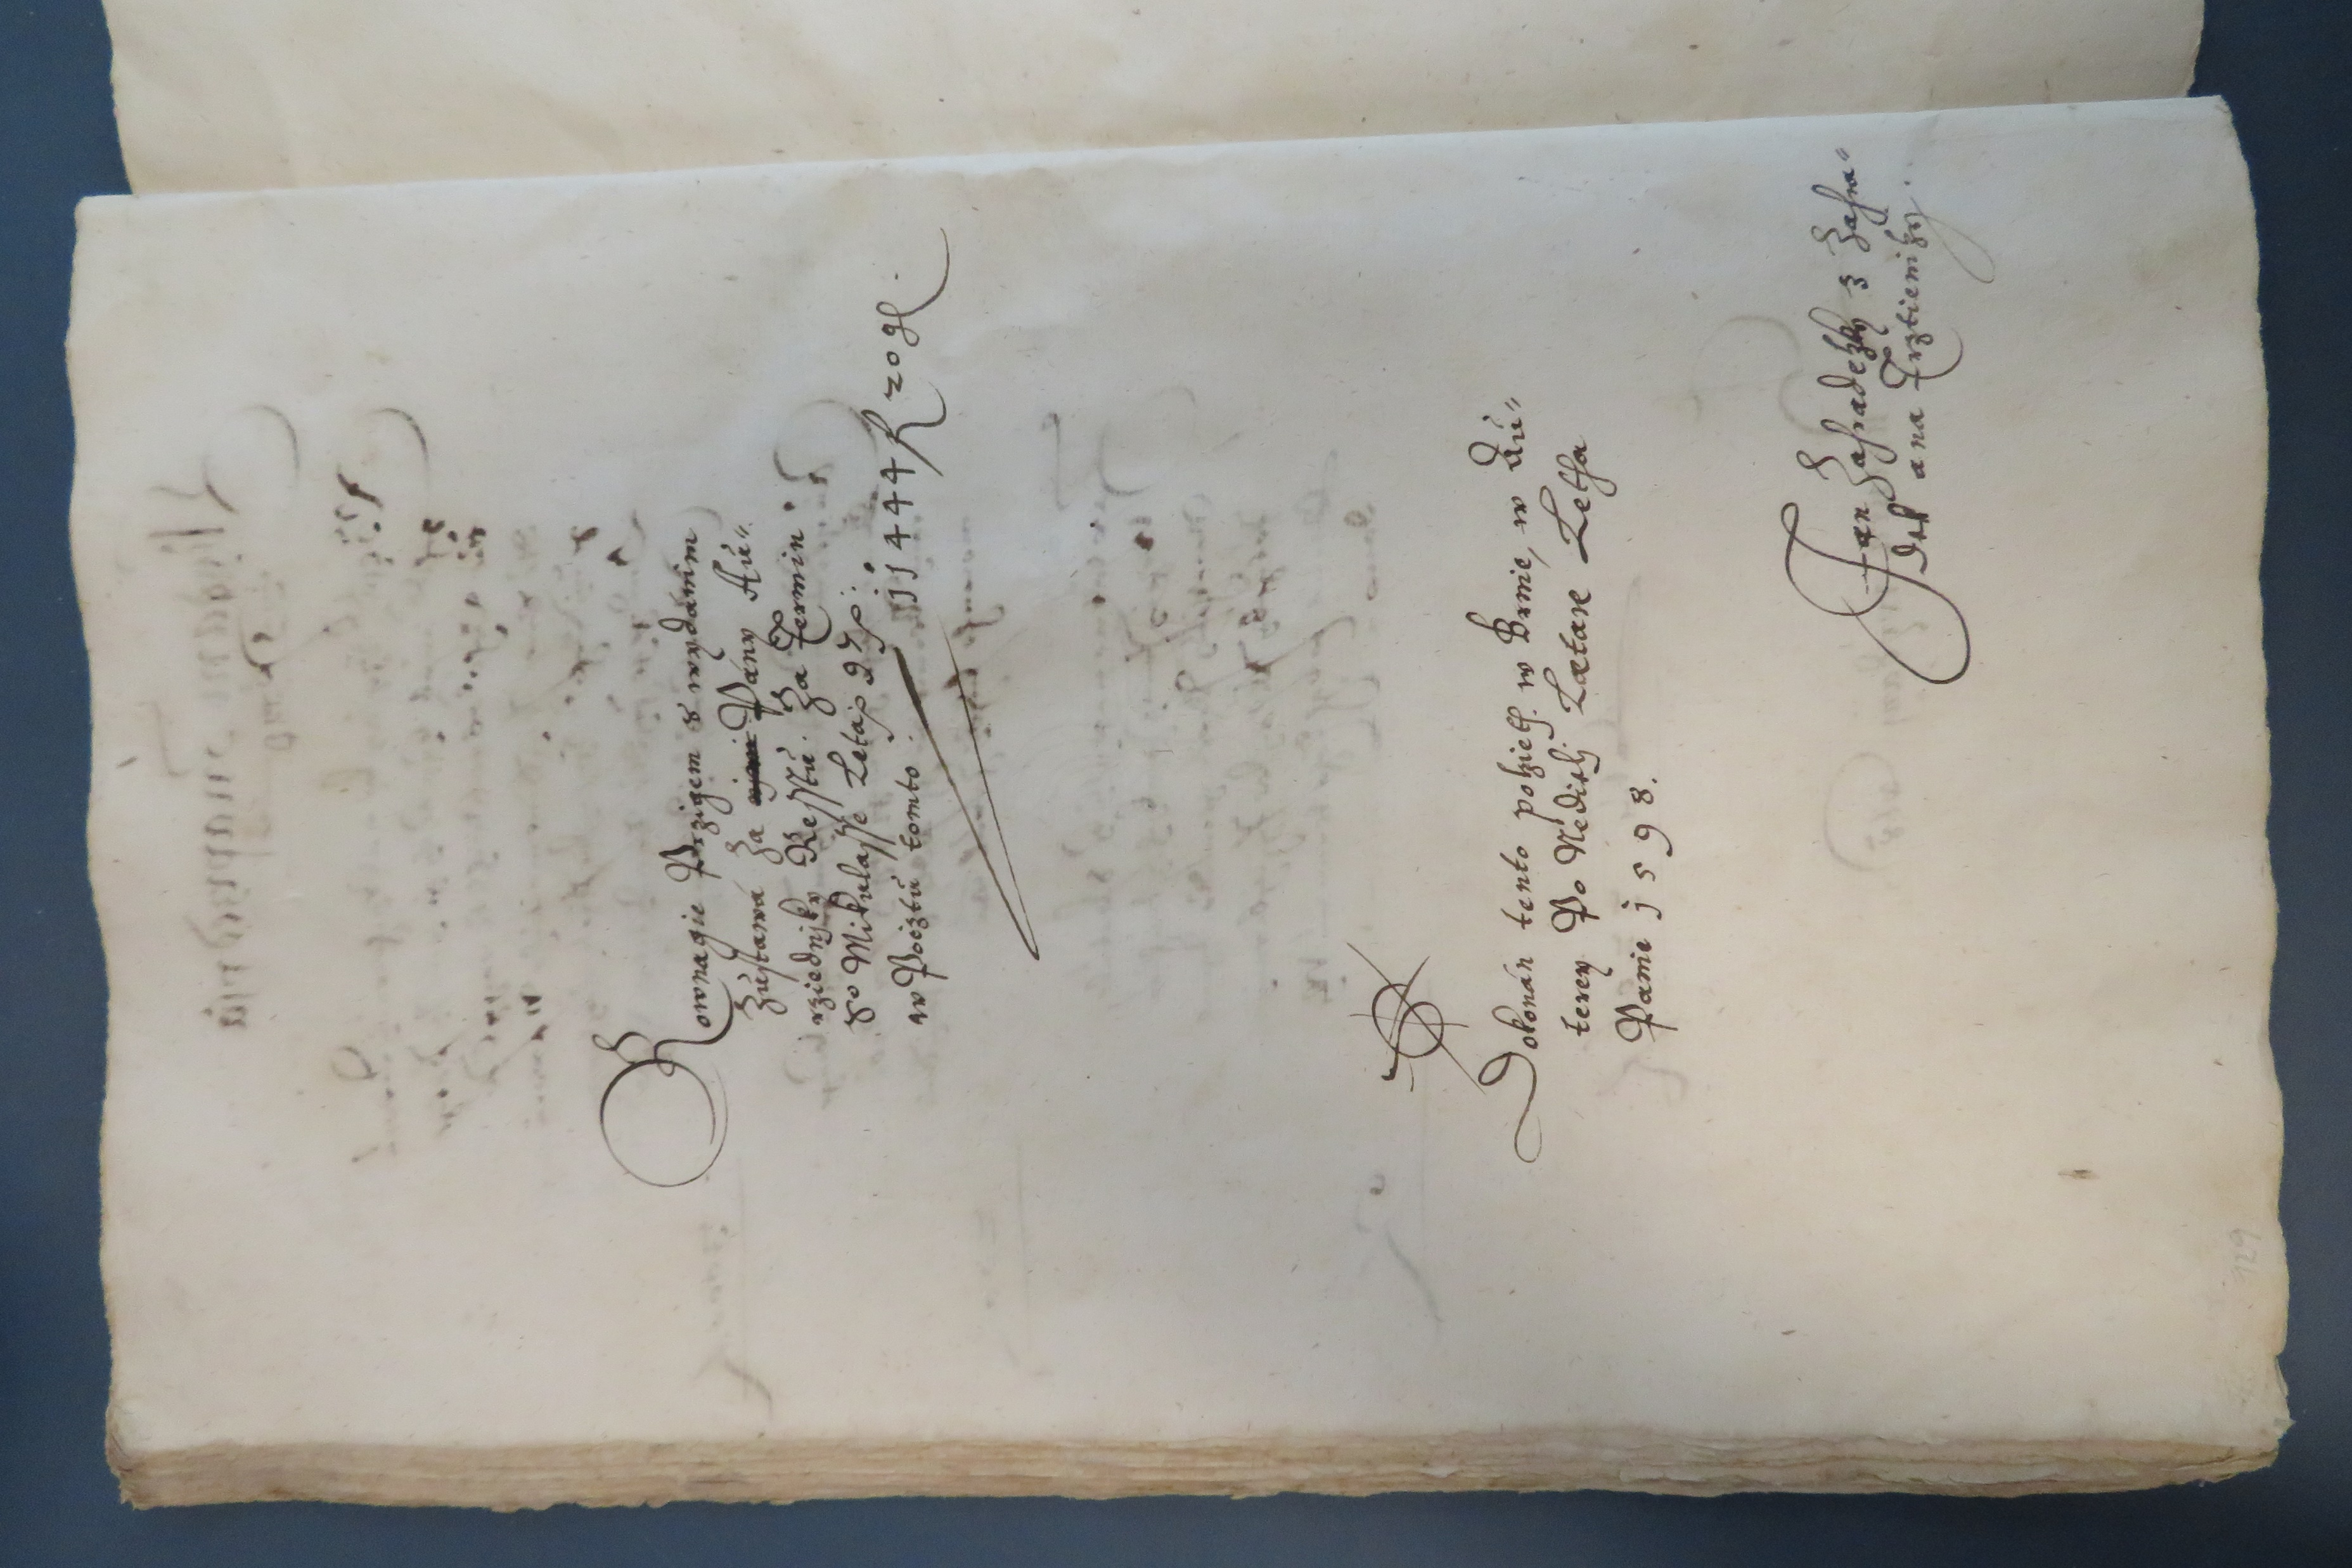 Rownagie Przigem s wydanim
Zůstawa Za Pány Au„
rziedniky Restů. Za Termin
So Mikulasse Letha 97.
w Pocztu tomto. jj444 R 20 gl.
Dokonán tento poczeth. w Brnie, w Au„
terey Po Nedieli Lætare Letha
Panie j598.
Jan Zahradeczky z Zahra„
dek a na Trztieniczy.
129